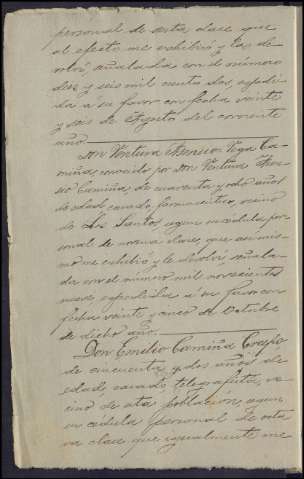 personal de sesta clase que
al efecto me exhibió y las de-
volví señalada con el número
diez y seis mil ciento dos, espedi-
da á su favor con fecha veinte
y seis de Agosto del corriente
año.
Don Ventura Vega Ca-
miña, conocido por Don Ventura
Camiña, de cuarenta y ocho años
de edad, casado, farmacéutico, vecino
de Los Santos, segun su cédula per-
sonal de novena clase, que asi mis-
mo me exhibió y le devolví señala-
da con el número mil novecientos
nueve espedida á su favor con
fecha veinte y cinco de Octubre
de dicho año.
Don Emilio Camiña Crespo
de cincuenta y dos años de
edad, casado, telegrafista, ve-
cino de esta poblacion, segun
su cédula personal de octa-
va clase que igualmente me